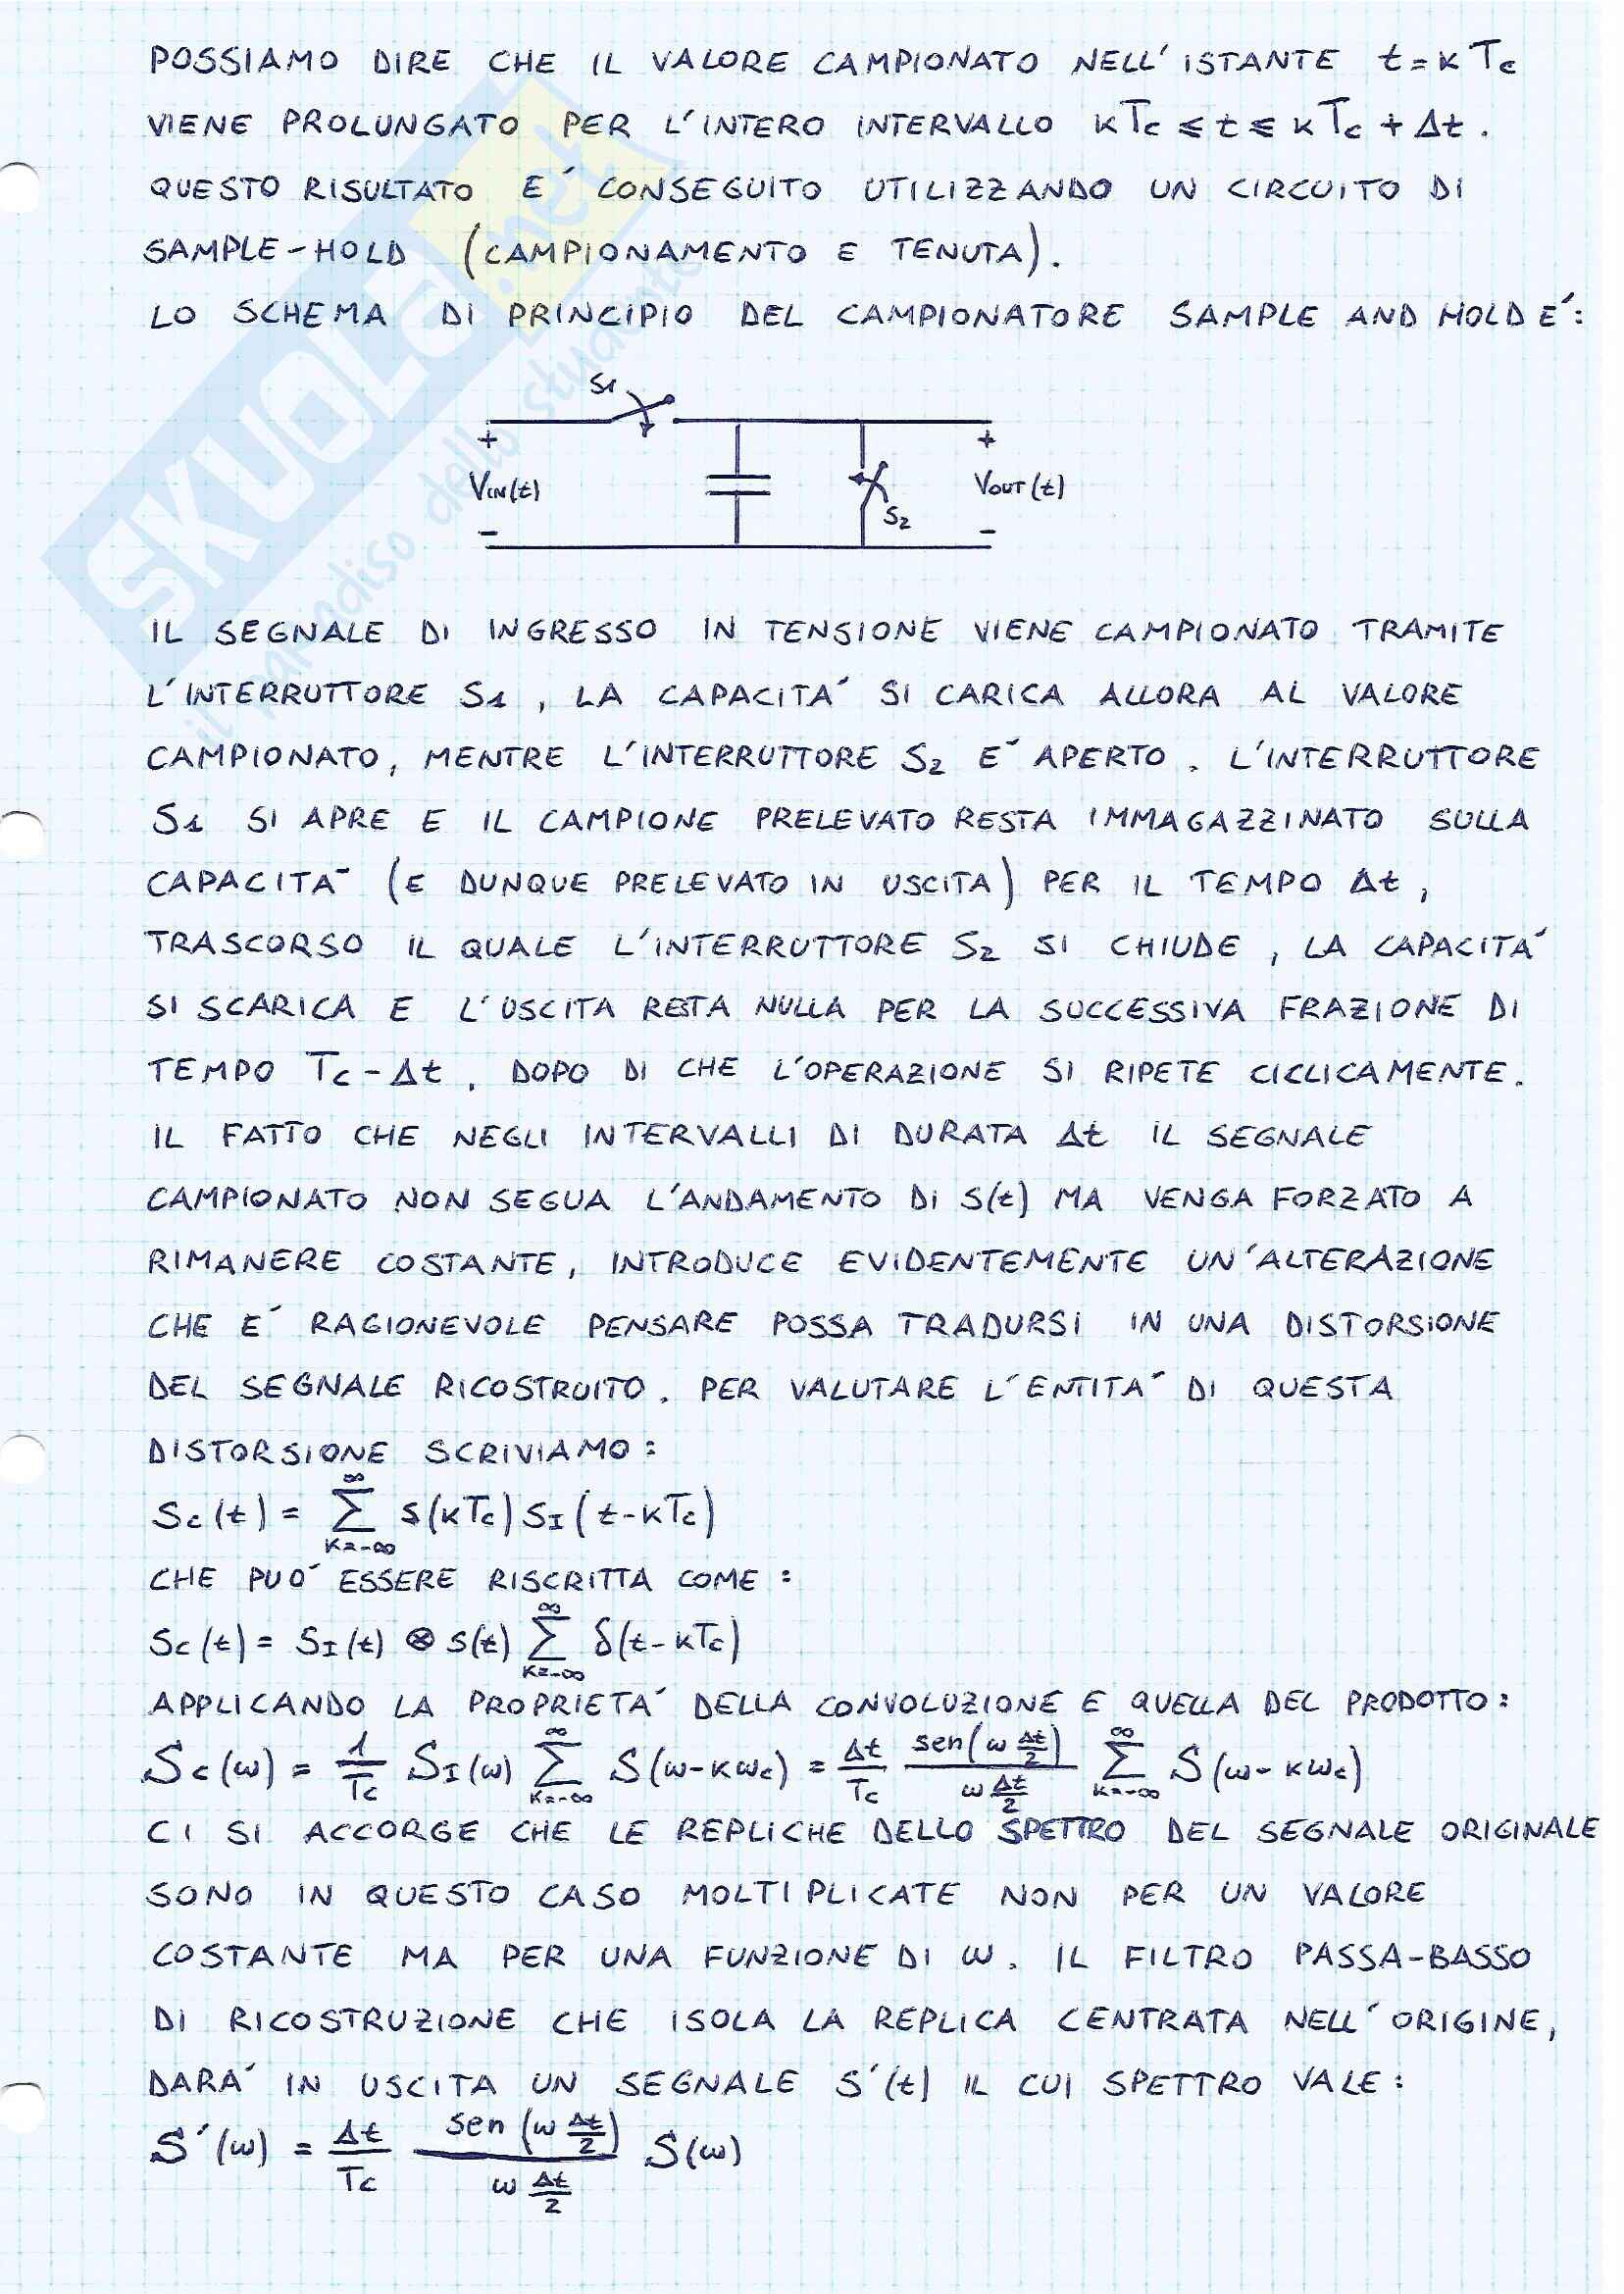 POSSIAMO DIRE CHE IL VALORE CAMPIONATO NELL'ISTANTE t=KTc
VIENE PROLUNGATO PER L'INTERO INTERVALLO KTc ≤ t ≤ KTc + Δt.
QUESTO RISULTATO E' CONSEGUITO UTILIZZANDO UN CIRCUITO DI
SAMPLE-HOLD (CAMPIONAMENTO E TENUTA).
LO SCHEMA DI PRINCIPIO DEL CAMPIONATORE SAMPLE AND HOLD E':
S1
+ +
VIN(t) VOUT(t)
S2
- -
IL SEGNALE DI INGRESSO IN TENSIONE VIENE CAMPIONATO TRAMITE
L'INTERRUTTORE S1, LA CAPACITA' SI CARICA ALLORA AL VALORE
CAMPIONATO, MENTRE L'INTERRUTTORE S2 E' APERTO. L'INTERRUTTORE
S1 SI APRE E IL CAMPIONE PRELEVATO RESTA IMMAGAZZINATO SULLA
CAPACITA' (E DUNQUE PRELEVATO IN USCITA) PER IL TEMPO Δt,
TRASCORSO IL QUALE L'INTERRUTTORE S2 SI CHIUDE, LA CAPACITA'
SI SCARICA E L'USCITA RESTA NULLA PER LA SUCCESSIVA FRAZIONE DI
TEMPO Tc-Δt, DOPO DI CHE L'OPERAZIONE SI RIPETE CICLICAMENTE.
IL FATTO CHE NEGLI INTERVALLI DI DURATA Δt IL SEGNALE
CAMPIONATO NON SEGUA L'ANDAMENTO DI S(t) MA VENGA FORZATO A
RIMANERE COSTANTE, INTRODUCE EVIDENTEMENTE UN'ALTERAZIONE
CHE E' RAGIONEVOLE PENSARE POSSA TRADURSI IN UNA DISTORSIONE
DEL SEGNALE RICOSTRUITO. PER VALUTARE L'ENTITA' DI QUESTA
DISTORSIONE SCRIVIAMO:
Sc(t) = ∑_{K=-∞}^{∞} S(KTc) SI(t-KTc)
CHE PUO' ESSERE RISCRITTA COME:
Sc(t) = SI(t) ⊗ S(t) ∑_{K=-∞}^{∞} δ(t-KTc)
APPLICANDO LA PROPRIETA' DELLA CONVOLUZIONE E QUELLA DEL PRODOTTO:
Sc(ω) = 1/Tc SI(ω) ∑_{K=-∞}^{∞} S(ω-Kωc) = Δt/Tc sen(ω Δt/2)/(ω Δt/2) ∑_{K=-∞}^{∞} S(ω-Kωc)
CI SI ACCORGE CHE LE REPLICHE DELLO SPETTRO DEL SEGNALE ORIGINALE
SONO IN QUESTO CASO MOLTIPLICATE NON PER UN VALORE
COSTANTE MA PER UNA FUNZIONE DI ω. IL FILTRO PASSA-BASSO
DI RICOSTRUZIONE CHE ISOLA LA REPLICA CENTRATA NELL'ORIGINE,
DARA' IN USCITA UN SEGNALE S'(t) IL CUI SPETTRO VALE:
S'(ω) = Δt/Tc sen(ω Δt/2)/(ω Δt/2) S(ω)
SKUOLA.net
il paradiso dello studente